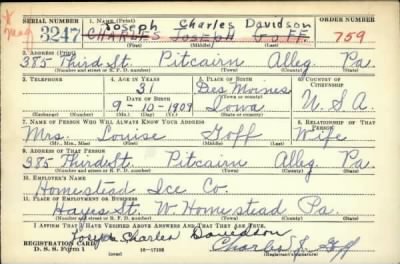 SERIAL NUMBER 1. NAME (Print) ORDER NUMBER
Joseph Charles Davidson
3247 CHARLES JOSEPH GOFF 759
(First) (Middle) (Last)
2. ADDRESS (Print)
385 Third St. Pitcairn Alleg. Pa.
(Number and street or R. F. D. number) (Town) (County) (State)
3. TELEPHONE 4. AGE IN YEARS 5. PLACE OF BIRTH 6. COUNTRY OF CITIZENSHIP
31 Des Moines
DATE OF BIRTH (Town or county)
9-10-1909 Iowa U.S.A.
(Exchange) (Number) (Mo.) (Day) (Yr.) (State or country)
7. NAME OF PERSON WHO WILL ALWAYS KNOW YOUR ADDRESS 8. RELATIONSHIP OF THAT PERSON
Mrs. Louise Goff Wife
(Mr., Mrs., Miss) (First) (Middle) (Last)
9. ADDRESS OF THAT PERSON
385 Third St. Pitcairn Alleg. Pa.
(Number and street or R. F. D. number) (Town) (County) (State)
10. EMPLOYER'S NAME
Homestead Ice Co.
11. PLACE OF EMPLOYMENT OR BUSINESS
Hayes St. W. Homestead Pa.
(Number and street or R. F. D. number) (Town) (County) (State)
I AFFIRM THAT I HAVE VERIFIED ABOVE ANSWERS AND THAT THEY ARE TRUE.
Joseph Charles Davidson
REGISTRATION CARD
D. S. S. Form 1 (over) 16-17105 Charles J. Goff